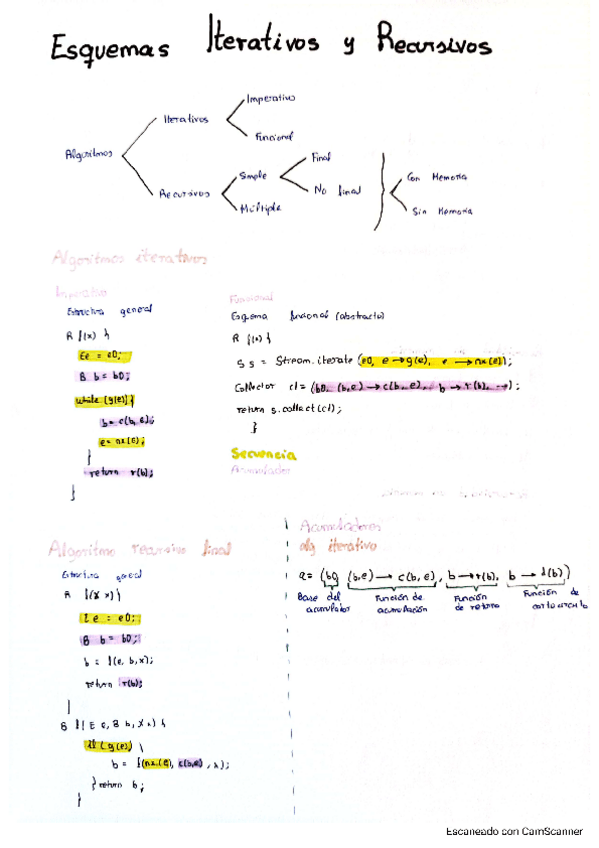 Esquemas Iterativos y Recursivos
Algoritmos
Iterativos
Imperativo
Funcional
Recursivos
Simple
Final
No final
Múltiple
Con Memoria
Sin Memoria
Algoritmos iterativos
Imperativo
Estructura general
R f(x) {
E e = e0;
B b = b0;
while (g(e)) {
b = c(b, e);
e = nx(e);
}
return r(b);
}
Funcional
Esquema funcional (abstracto)
R f(x) {
S s = Stream.iterate (e0, e → g(e), e → nx(e));
Collector cl = (b0, (b,e) → c(b,e), b → r(b), →);
return s.collect(cl);
}
Secuencia
Acumulador
Algoritmo recursivo final
Estructura general
R f(X x) {
E e = e0;
B b = b0;
b = f(e, b, x);
return r(b);
}
B f(E e, B b, X x) {
if (g(e)) {
b = f(nx(e), c(b,e), x);
} return b;
}
Acumuladores
alg iterativo
a = (b0, (b,e) → c(b, e), b → r(b), b → d(b))
Base del acumulador
Función de acumulación
Función de retorno
Función de cortocircuito
Escaneado con CamScanner